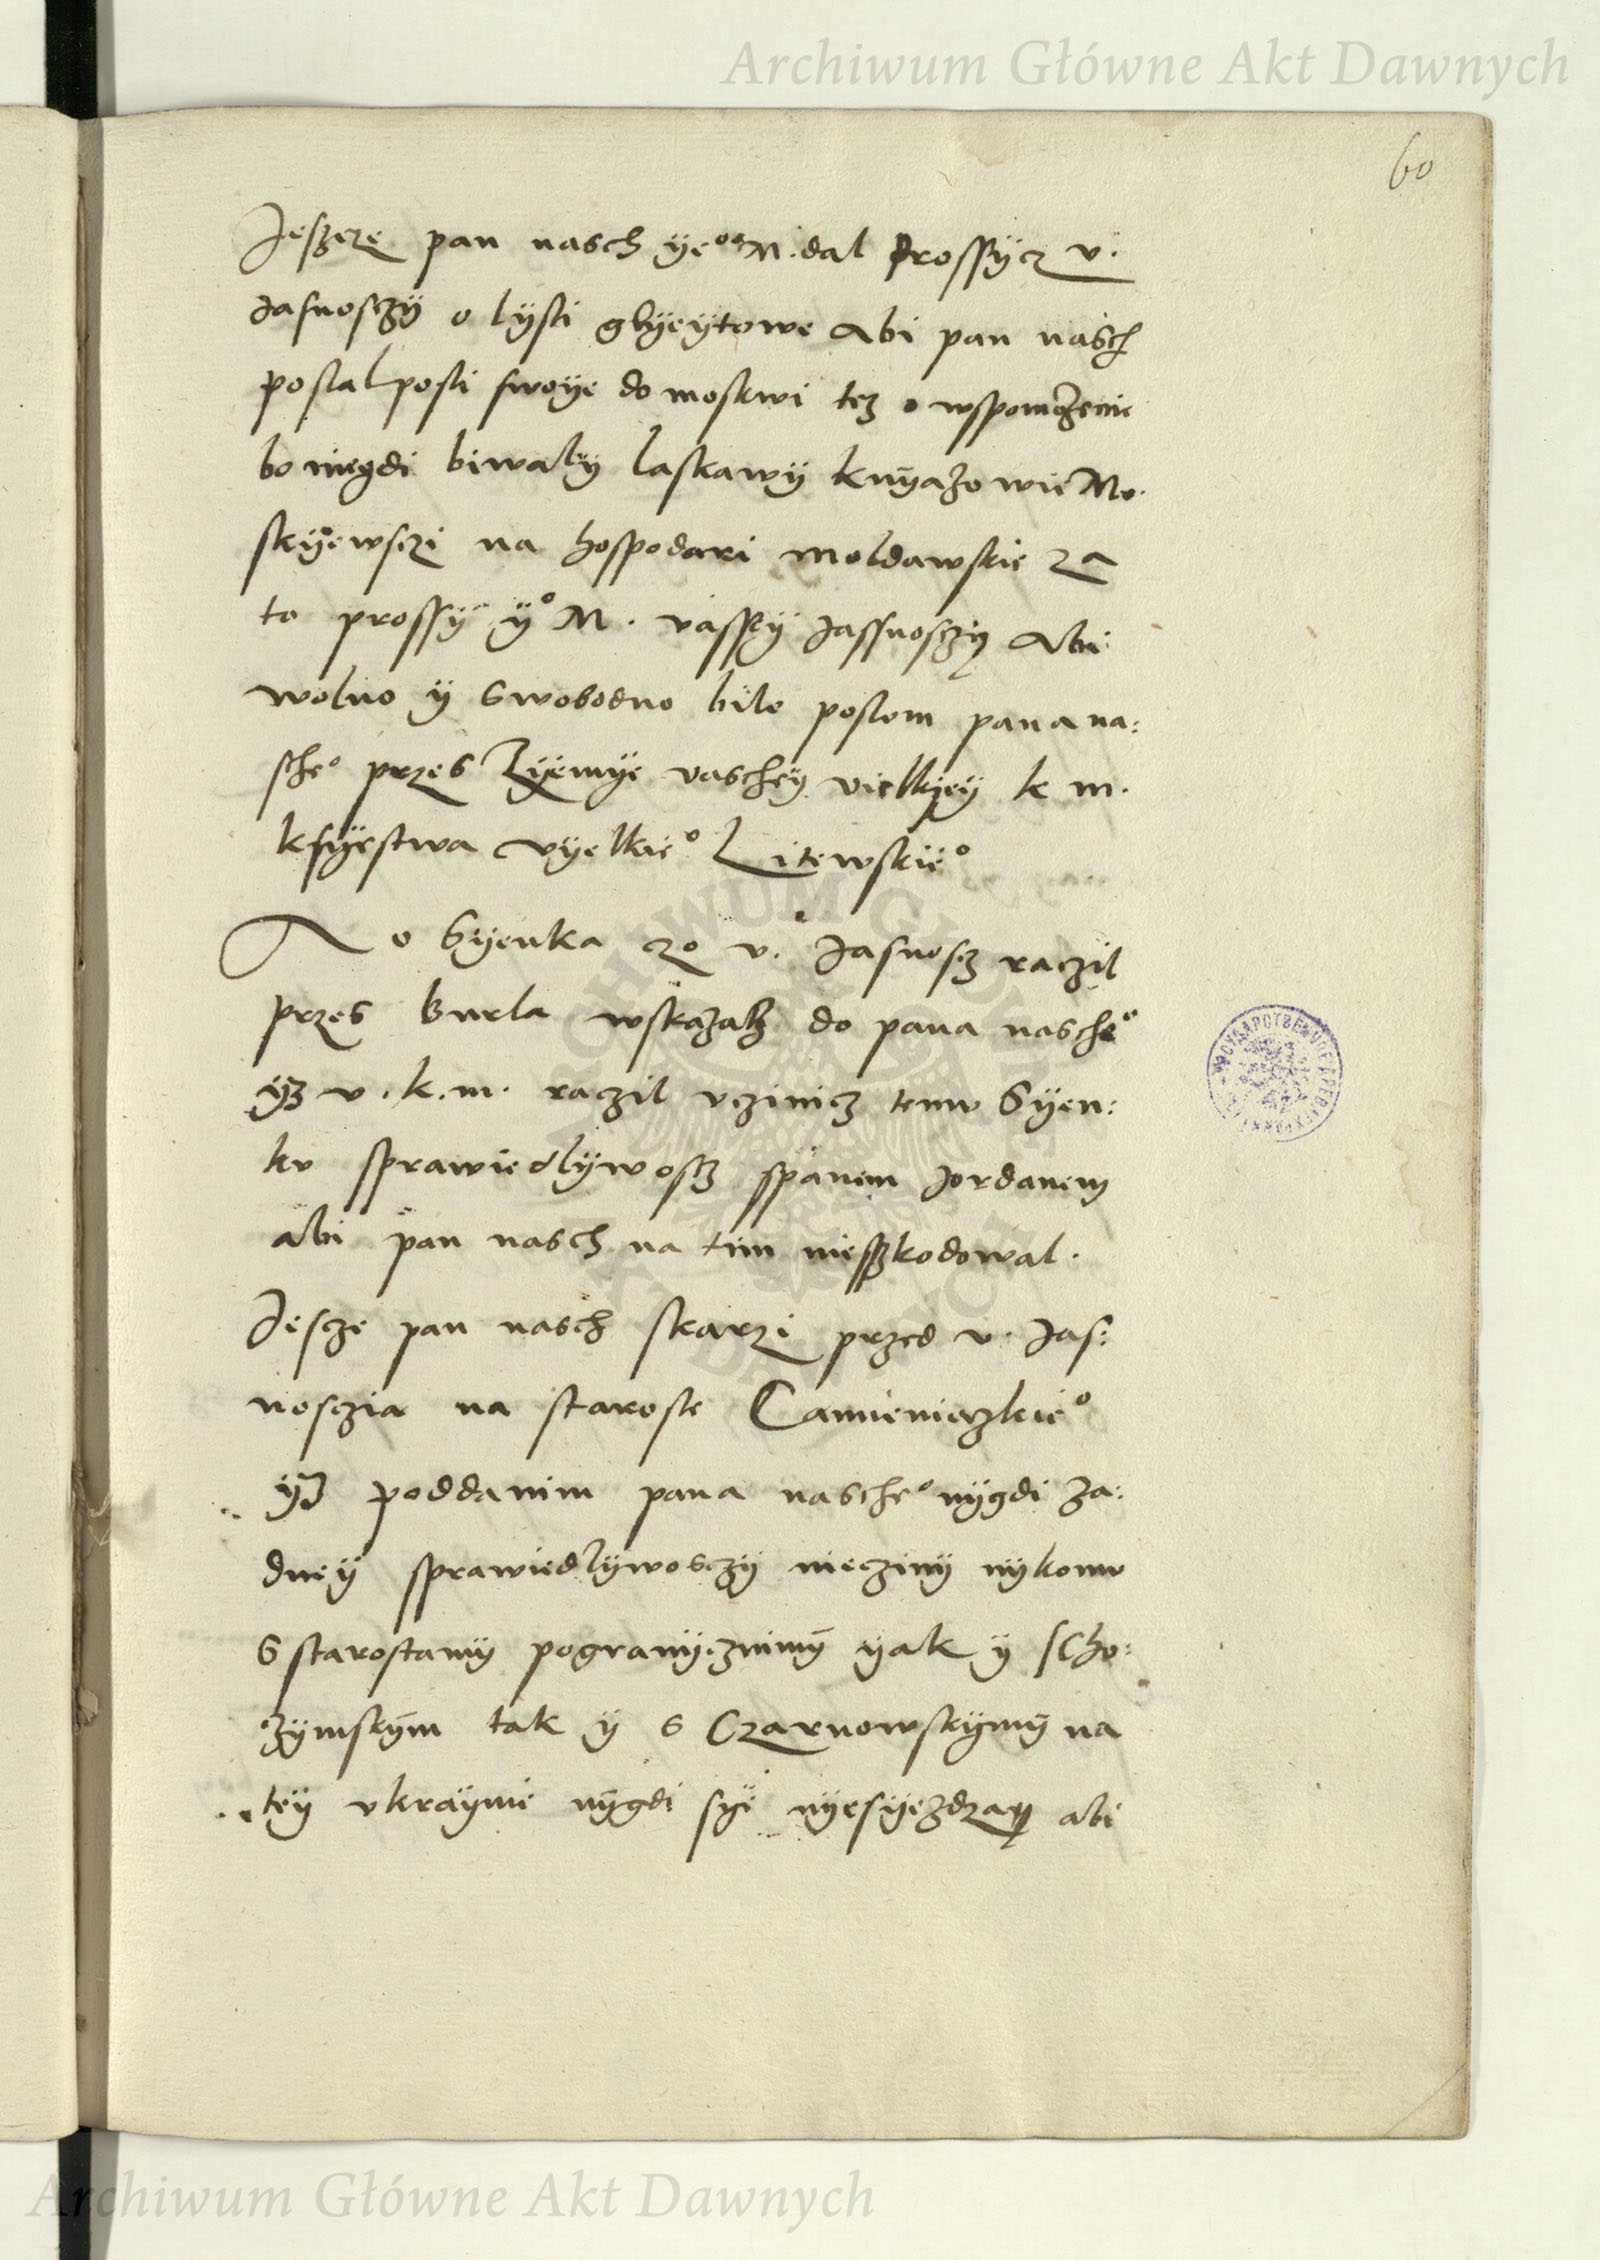 Archiwum Główne Akt Dawnych
60
Jescze pan nasch ÿe° M. dal prossÿcz v.
Jasnosczÿ o lÿsti glÿeÿtowe abi pan nasch
poslal posli swoÿe do moskwi tez o wspomozenie
bo niegdi biwalÿ laskawÿ knÿazowie Mo.
skÿewsczi na hospodari moldawskie za
to prossÿ ÿ° M. vassÿ Jassnosczÿ abi
wolno ÿ swobodno bilo poslom pana na:
sche° przes Zÿemÿe vascheÿ vielkieÿ k m.
ksÿestwa vÿelkie° Litewskie°
A o Sÿenka czo v. Jasnoscz raczil
przes Burla wskazacz do pana nasche°
ÿz v. k. m. raczil vczinicz temu Sÿen:
ku sprawiedlÿwoscz spanem Jordanem
abi pan nasch na tim nieszkodowal.
Jescze pan nasch skarzi przed v. Jas:
nosczia na staroste Camienieczkie°
ÿz poddanim pana nasche° nÿgdi za:
dneÿ sprawiedlÿwosczÿ nieczinÿ nÿkomu
s starostamÿ pogranÿcznimÿ ÿak ÿ s Cho:
zÿmskÿm tak ÿ s Czarnowskÿmÿ na
teÿ vkraÿnie nÿgdi sÿe nÿesÿezdzaÿ abi
Archiwum Główne Akt Dawnych